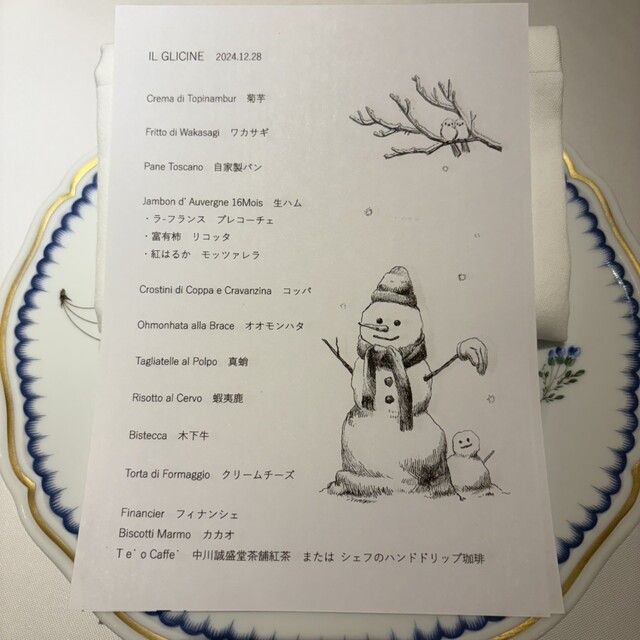 IL GLICINE 2024.12.28
Crema di Topinambur 菊芋
Fritto di Wakasagi ワカサギ
Pane Toscano 自家製パン
Jambon d' Auvergne 16Mois 生ハム
・ラ-フランス ブレコーチェ
・富有柿 リコッタ
・紅はるか モッツァレラ
Crostini di Coppa e Cravanzina コッパ
Ohmonhata alla Brace オオモンハタ
Tagliatelle al Polpo 真蛸
Risotto al Cervo 蝦夷鹿
Bistecca 木下牛
Torta di Formaggio クリームチーズ
Financier フィナンシェ
Biscotti Marmo カカオ
T e` o Caffe` 中川誠盛堂茶舗紅茶 または シェフのハンドドリップ珈琲